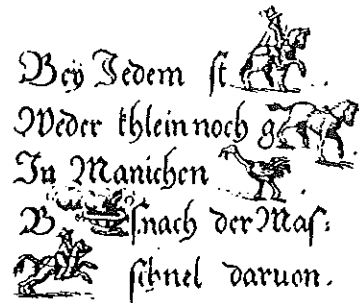 Beÿ Jedem st
Weder khlein noch g
In Manichen
B s. nach der Mas:
schnel daruon.